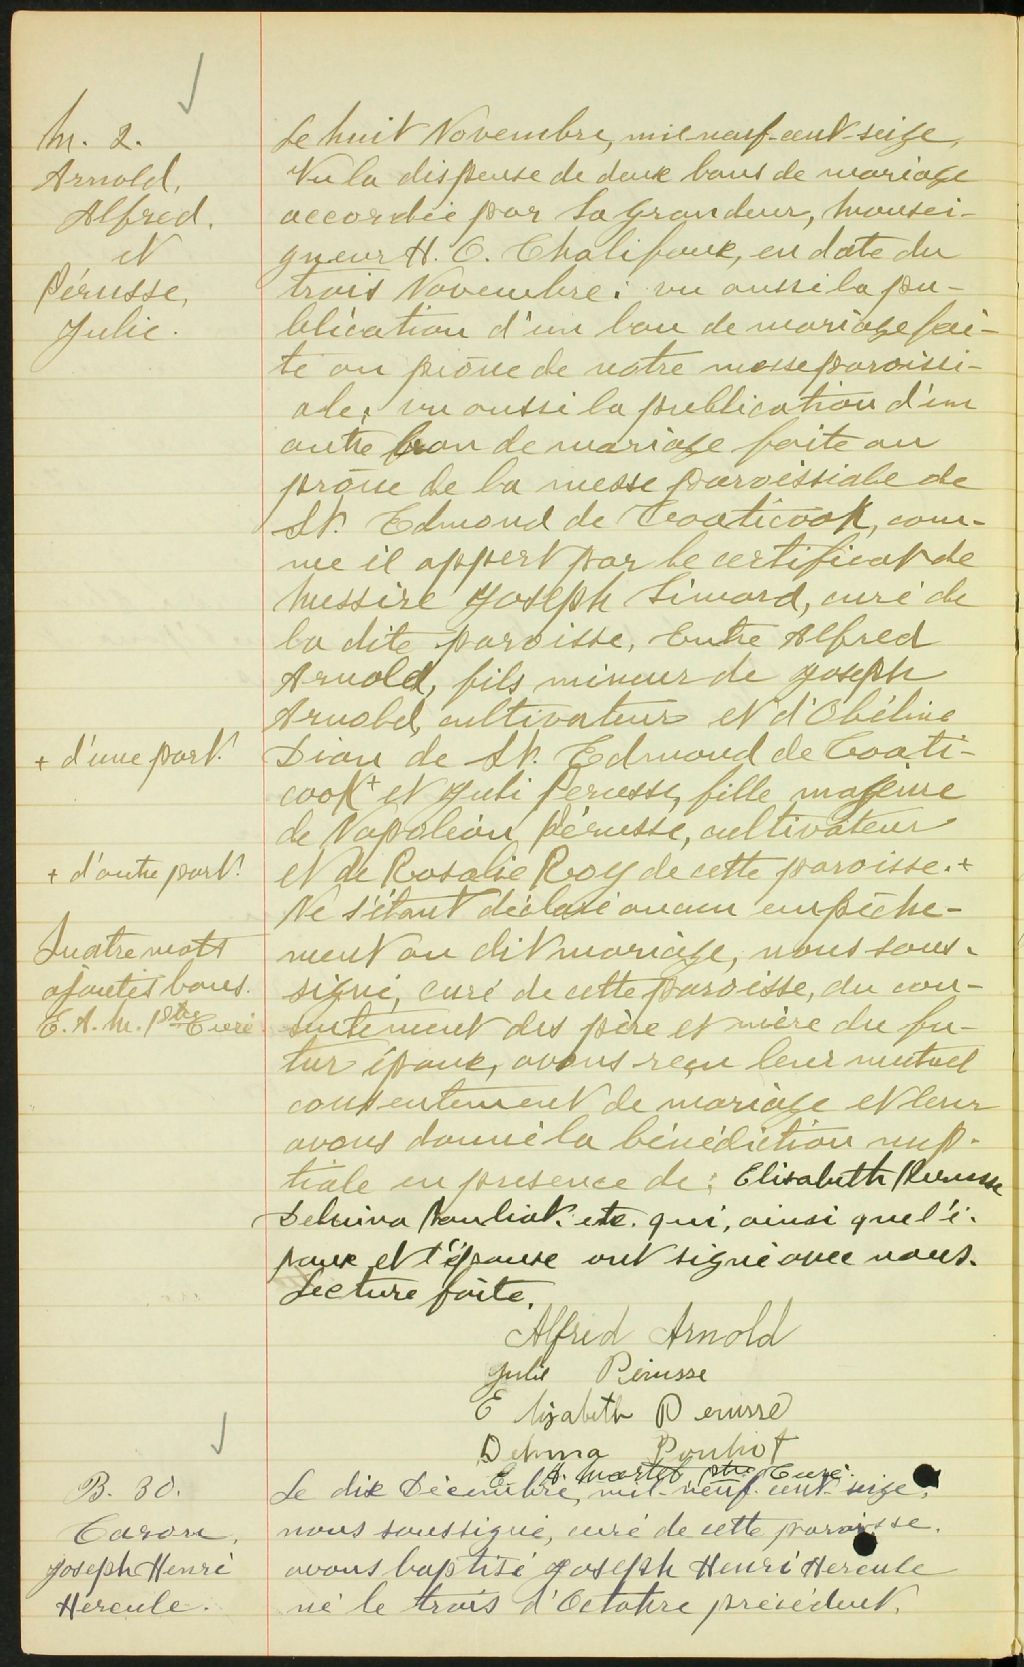 M. 2.
Arnold,
Alfred.
et
Pérusse,
Julie.
Le huit Novembre, mil neuf-cent-seize,
Vu la dispense de deux bans de mariage
accordée par Sa Grandeur, Monsei-
gneur H. O. Chalifoux, en date du
trois Novembre; vu aussi la pu-
blication d'un ban de mariage fai-
te au prône de notre messe paroissi-
ale; vu aussi la publication d'un
autre ban de mariage faite au
prône de la messe paroissiale de
St. Edmond de Coaticook, com-
me il appert par le certificat de
Messire Joseph Simard, curé de
la dite paroisse, Entre Alfred
Arnold, fils mineur de Joseph
Arnold, cultivateur et d'Obéline
+ d'une part.
Dion de St. Edmond de Coati-
cook + et Juli Perusse, fille majeure
de Napoléon Pérusse, cultivateur
+ d'autre part.
et de Rosalie Roy de cette paroisse. +
Ne s'étant déclaré aucun empêche-
Quatre mots
ajoutés bons.
E. A. M. ptre Curé
ment au dit mariage, nous sous-
signé, curé de cette paroisse, du con-
sentement des père et mère du fu-
tur époux, avons reçu leur mutuel
consentement de mariage et leur
avons donné la bénédiction nup-
tiale en presence de: Elisabeth Perusse
Delmina Pouliot. etc. qui, ainsi que l'é-
poux et l'épouse ont signé avec nous.
Lecture faite.
Alfred Arnold
Julie Pérusse
Elizabeth Perusse
Delmina Pouliot
E. A. Martel, ptre Curé.
B. 30.
Caron,
Joseph Henri
Hercule.
Le dix Décembre, mil-neuf-cent-seize,
nous soussigné, curé de cette paroisse.
avons baptisé Joseph Henri Hercule
né le trois d'Octobre précédent,